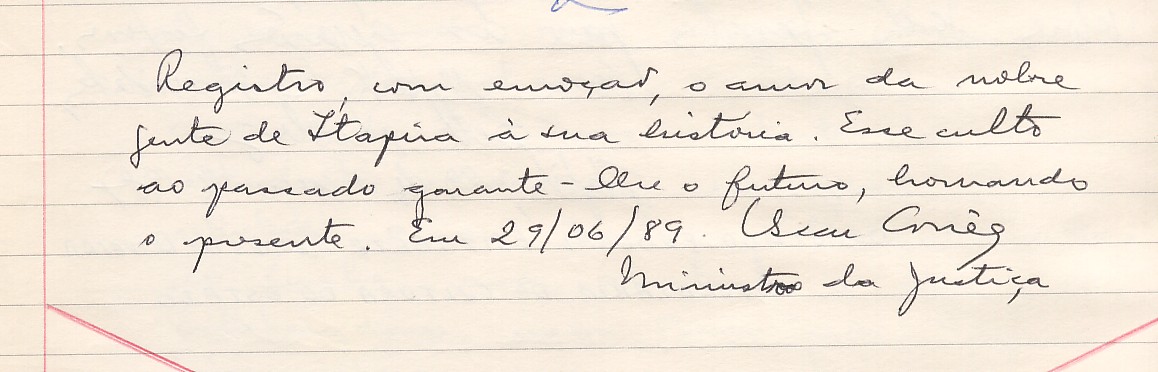 Registro, com emoção, o amor da nobre
gente de Itapira à sua história. Esse culto
ao passado garante-lhe o futuro, honrando
o presente. Em 29/06/89. Oscar Corrêa
Ministro da Justiça